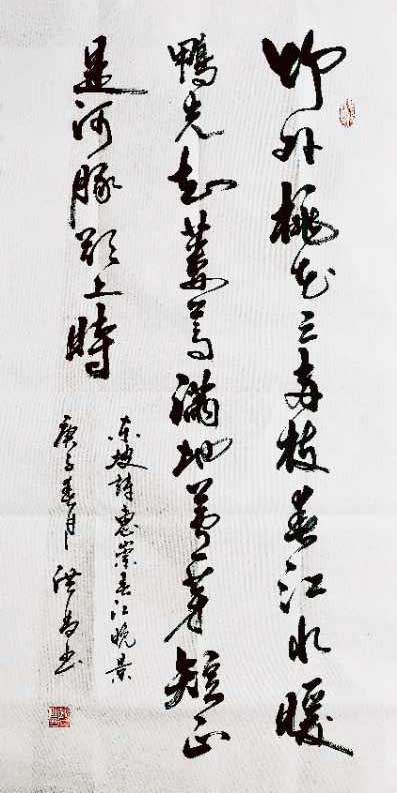 竹外桃花三兩枝春江水暖
鴨先知蔞蒿滿地蘆芽短正
是河豚欲上時
東坡詩惠崇春江晚景
庚子春月洪書